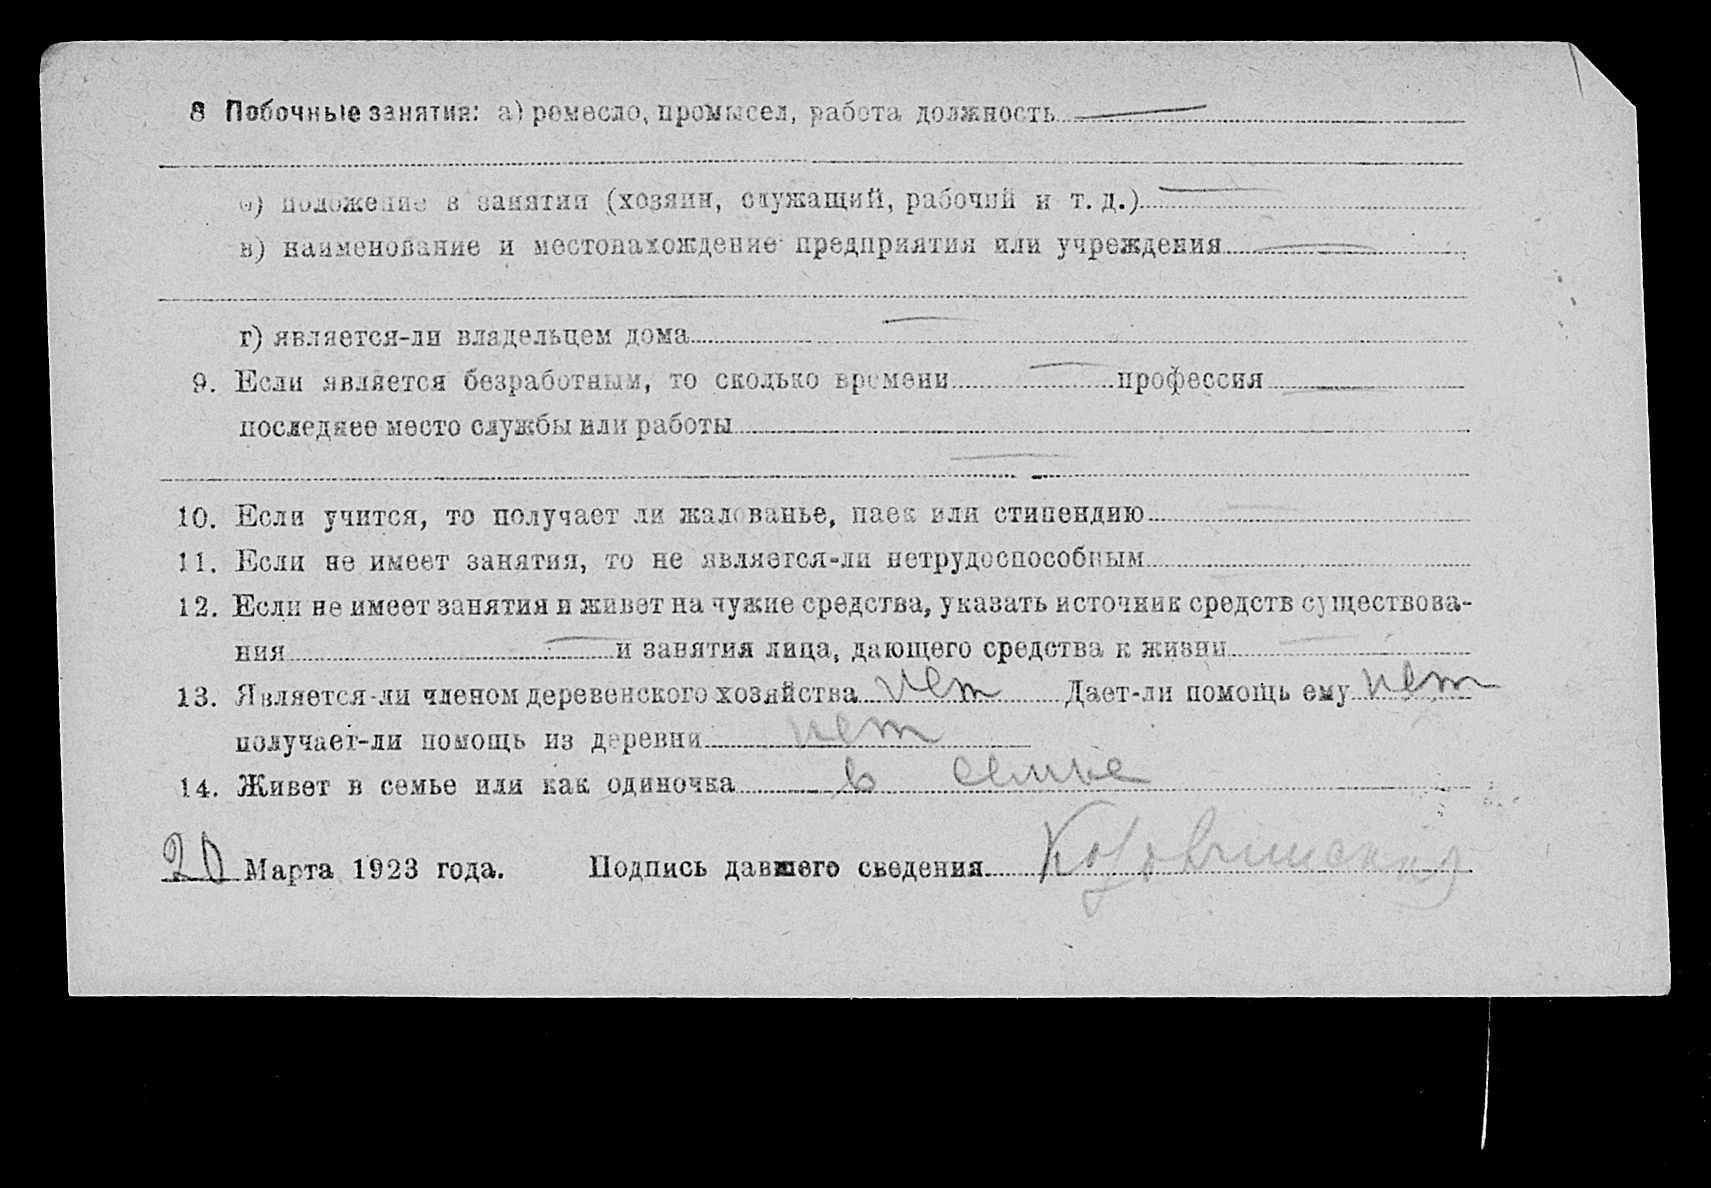 8 Побочные занятия: а) ремесло, промысел, работа должность
б) положение в занятии (хозяин, служащий, рабочий и т. д.)
в) наименование и местонахождение предприятия или учреждения
г) является-ли владельцем дома
9. Если является безработным, то сколько времени профессия
последнее место службы или работы
10. Если учится, то получает ли жалованье, паек или стипендию
11. Если не имеет занятия, то не является-ли нетрудоспособным
12. Если не имеет занятия и живет на чужие средства, указать источник средств существова-
ния и занятия лица, дающего средства к жизни
13. Является-ли членом деревенского хозяйства нет Дает-ли помощь ему нет
получает-ли помощь из деревни нет
14. Живет в семье или как одиночка в семье
20 Марта 1923 года. Подпись давшего сведения